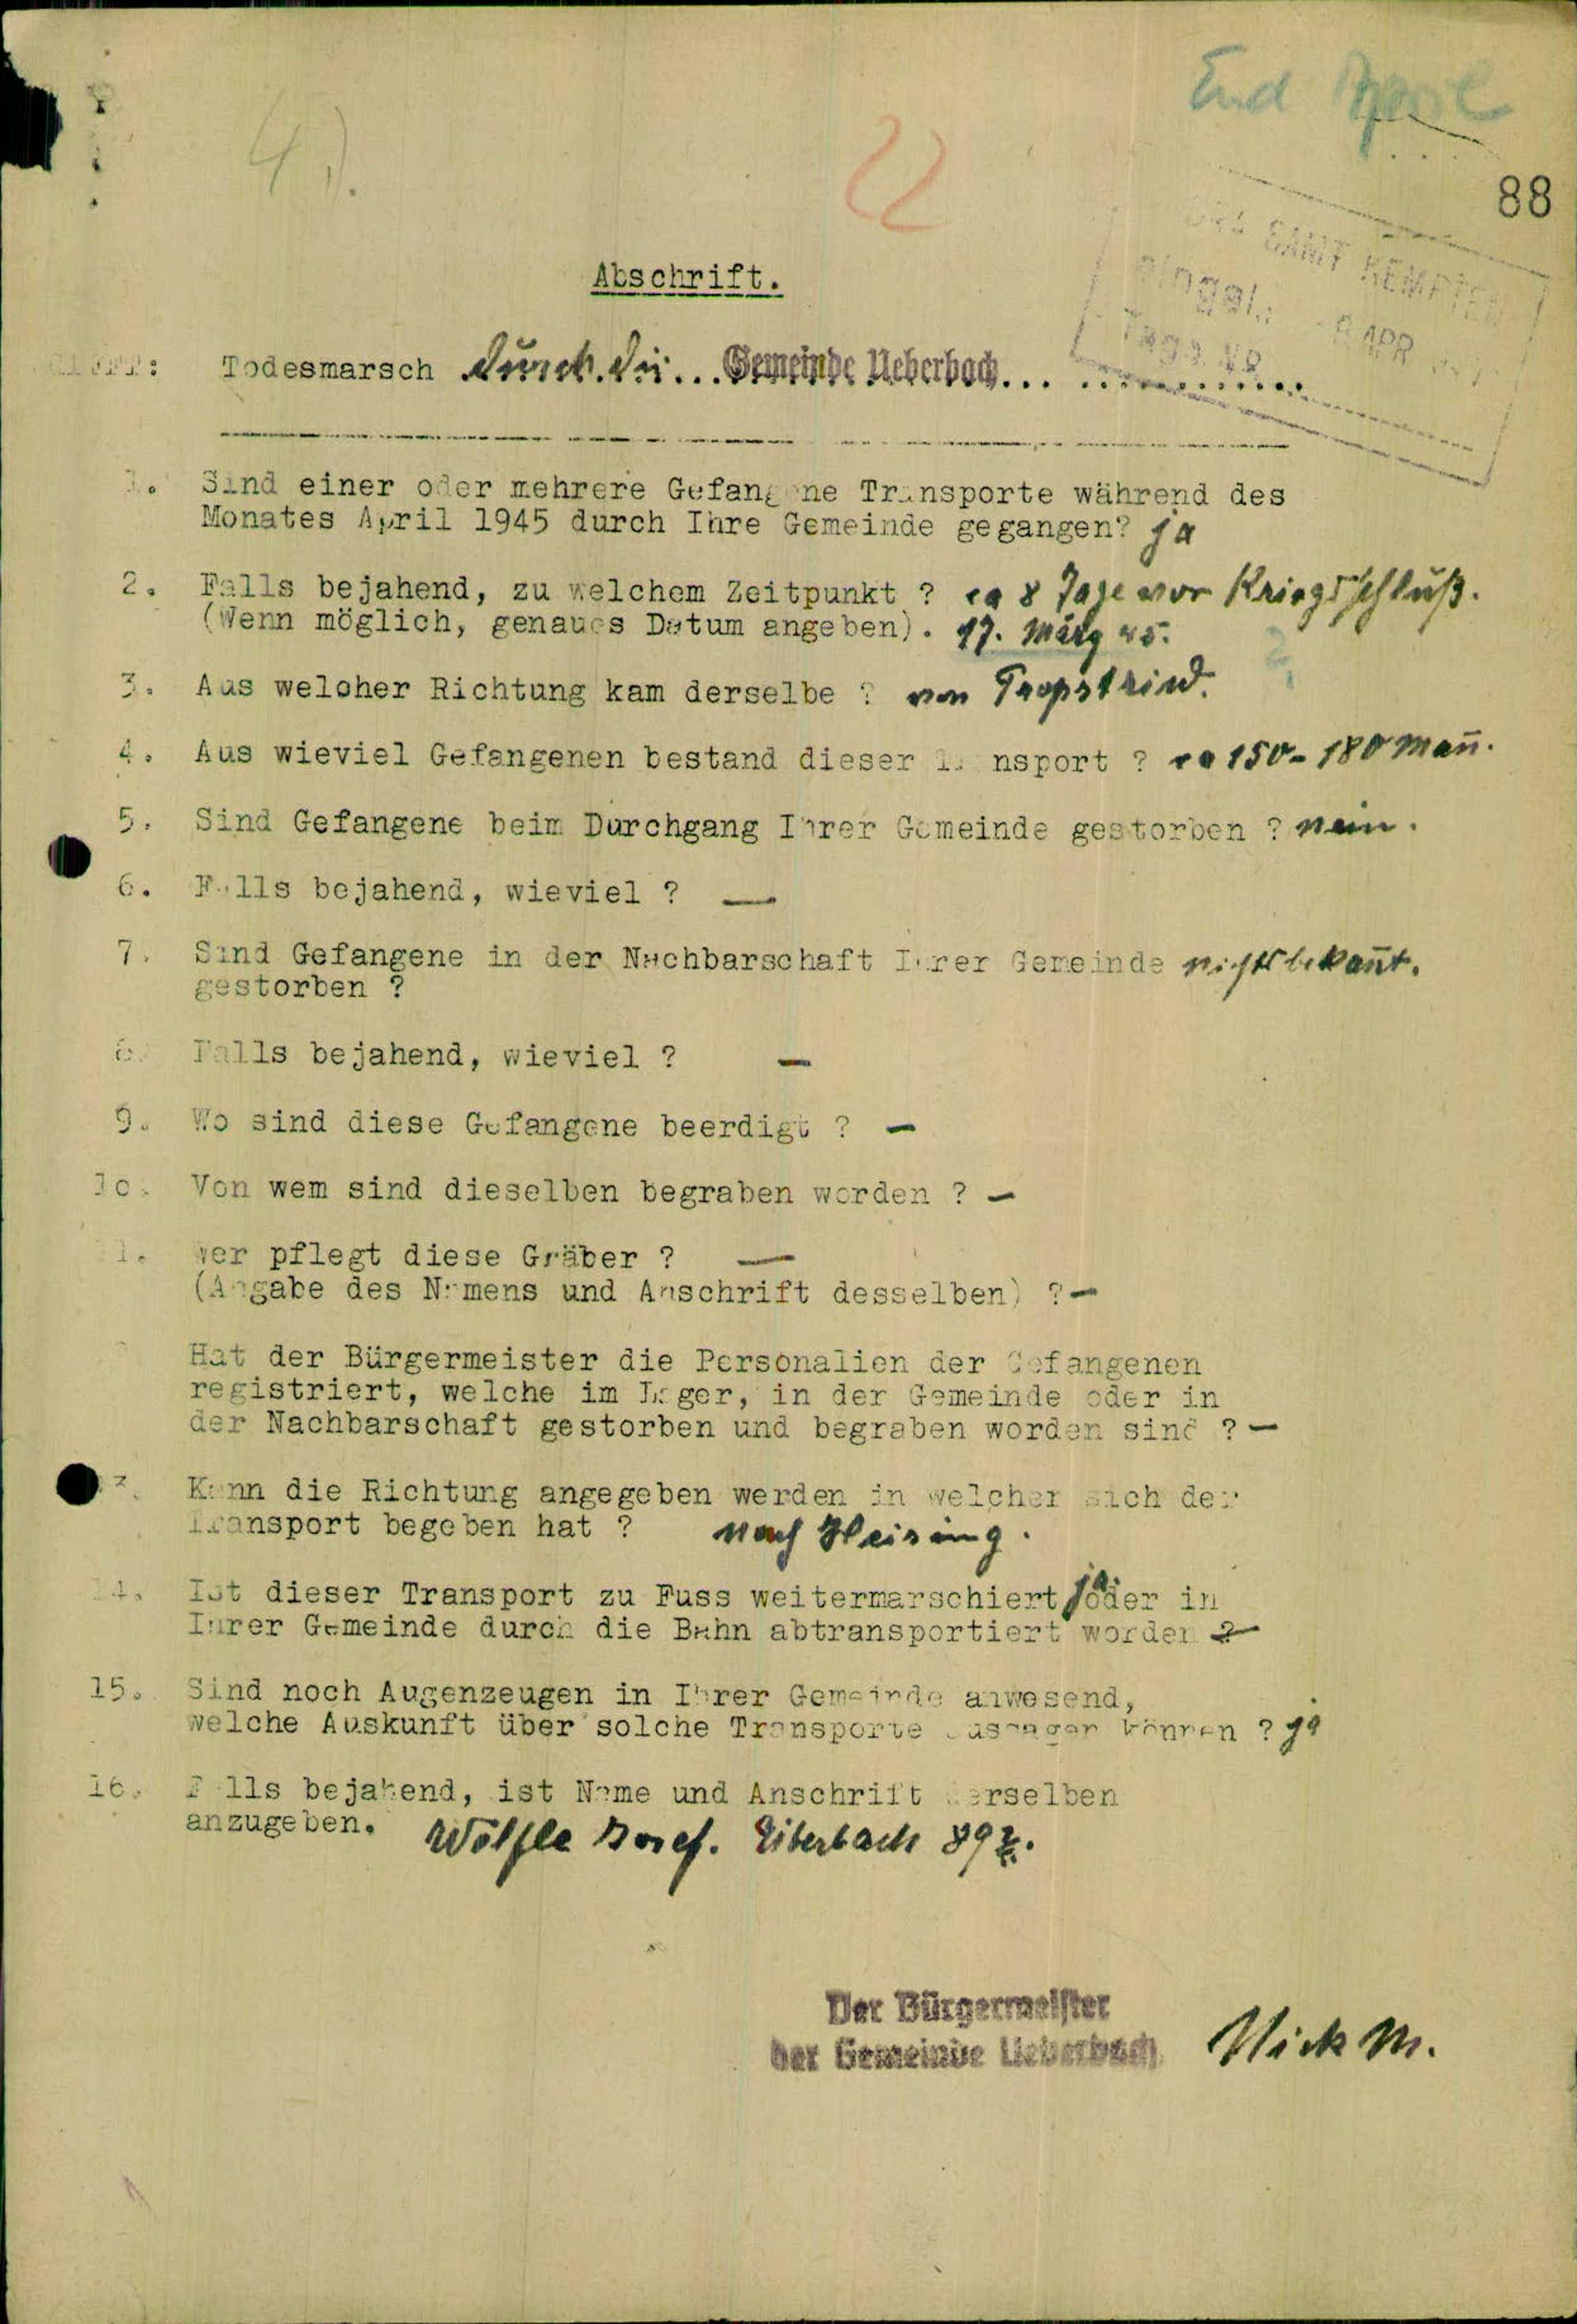 End April
4).
22
88
SAMT KEMPTEN
Eingel.: APR
Tagb. No
Abschrift.
Todesmarsch durch die... Gemeinde Ueberbach... ............
1. Sind einer oder mehrere Gefangene Transporte während des
Monates April 1945 durch Ihre Gemeinde gegangen? ja
2. Falls bejahend, zu welchem Zeitpunkt ? ca 8 Tage vor Kriegsschluß.
(Wenn möglich, genaues Datum angeben). 17. März 45.
3. Aus welcher Richtung kam derselbe ? von Propstried.
4. Aus wieviel Gefangenen bestand dieser Transport ? ca 150-180 Mañ.
5. Sind Gefangene beim Durchgang Ihrer Gemeinde gestorben ? nein.
6. Falls bejahend, wieviel ? —
7. Sind Gefangene in der Nachbarschaft Ihrer Gemeinde nicht bekañt.
gestorben ?
8. Falls bejahend, wieviel ? —
9. Wo sind diese Gefangene beerdigt ? —
10. Von wem sind dieselben begraben worden ? —
11. Wer pflegt diese Gräber ? —
(Angabe des Namens und Anschrift desselben) ? —
Hat der Bürgermeister die Personalien der Gefangenen
registriert, welche im Lager, in der Gemeinde oder in
der Nachbarschaft gestorben und begraben worden sind ? —
13. Kann die Richtung angegeben werden in welcher sich der
Transport begeben hat ? nach Heising.
14. Ist dieser Transport zu Fuss weitermarschiert ja. oder in
Ihrer Gemeinde durch die Bahn abtransportiert worden ? —
15. Sind noch Augenzeugen in Ihrer Gemeinde anwesend,
welche Auskunft über solche Transporte aussagen können ? ja
16. Falls bejahend, ist Name und Anschrift derselben
anzugeben. Wölfle Josef. Überbach 89
Der Bürgermeister
der Gemeinde Ueberbach
M.